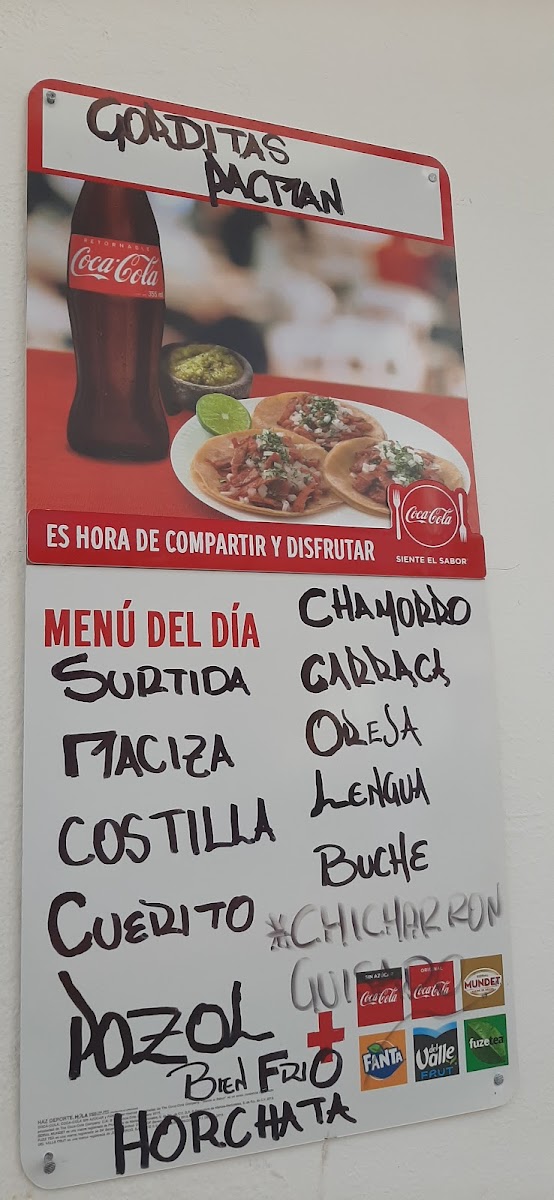 GORDITAS
PACMAN
RETORNABLE
Coca-Cola
355 ml
Coca-Cola
ES HORA DE COMPARTIR Y DISFRUTAR
SIENTE EL SABOR
MENÚ DEL DÍA
SURTIDA
MACIZA
COSTILLA
CUERITO
CHAMORRO
GARRAGA
OREJA
LENGUA
BUCHE
*CHICHARRON
GUISADO
POZOL
BIEN FRIO
HORCHATA
+
SIN AZÚCAR
Coca-Cola
ORIGINAL
Coca-Cola
MUNDET
FANTA
del Valle
FRUT
fuzetea
HAZ DEPORTE.